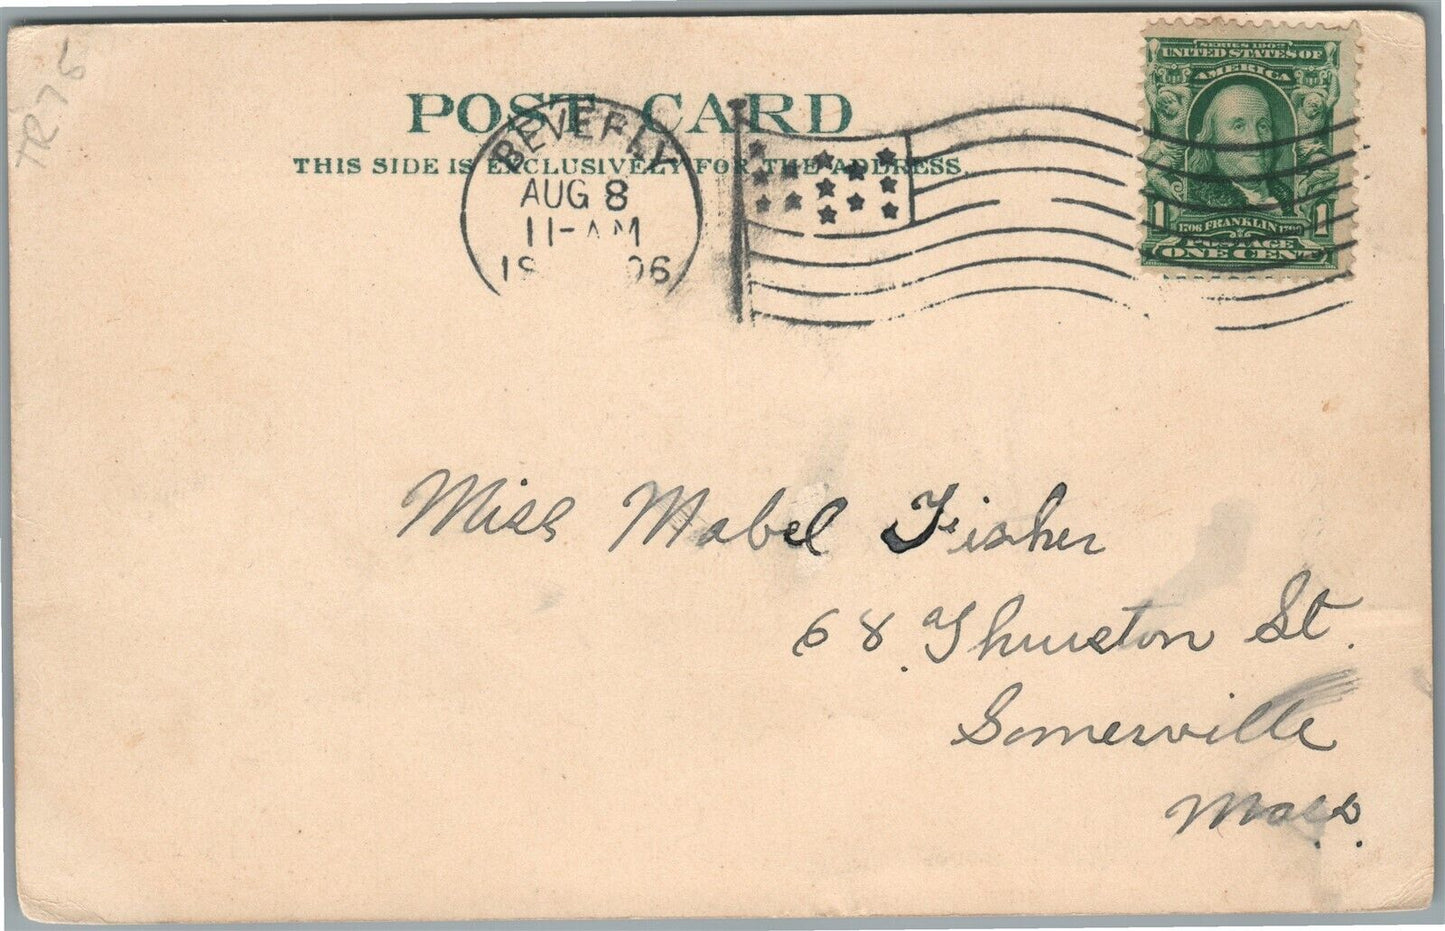 TR75
POST CARD
THIS SIDE IS EXCLUSIVELY FOR THE ADDRESS.
BEVERLY
AUG 8
11-AM
1906
SERIES 1902
UNITED STATES OF
AMERICA
1706 FRANKLIN 1790
1 POSTAGE 1
ONE CENT
Miss Mabel Fisher
68 Thurston St.
Somerville
Mass.